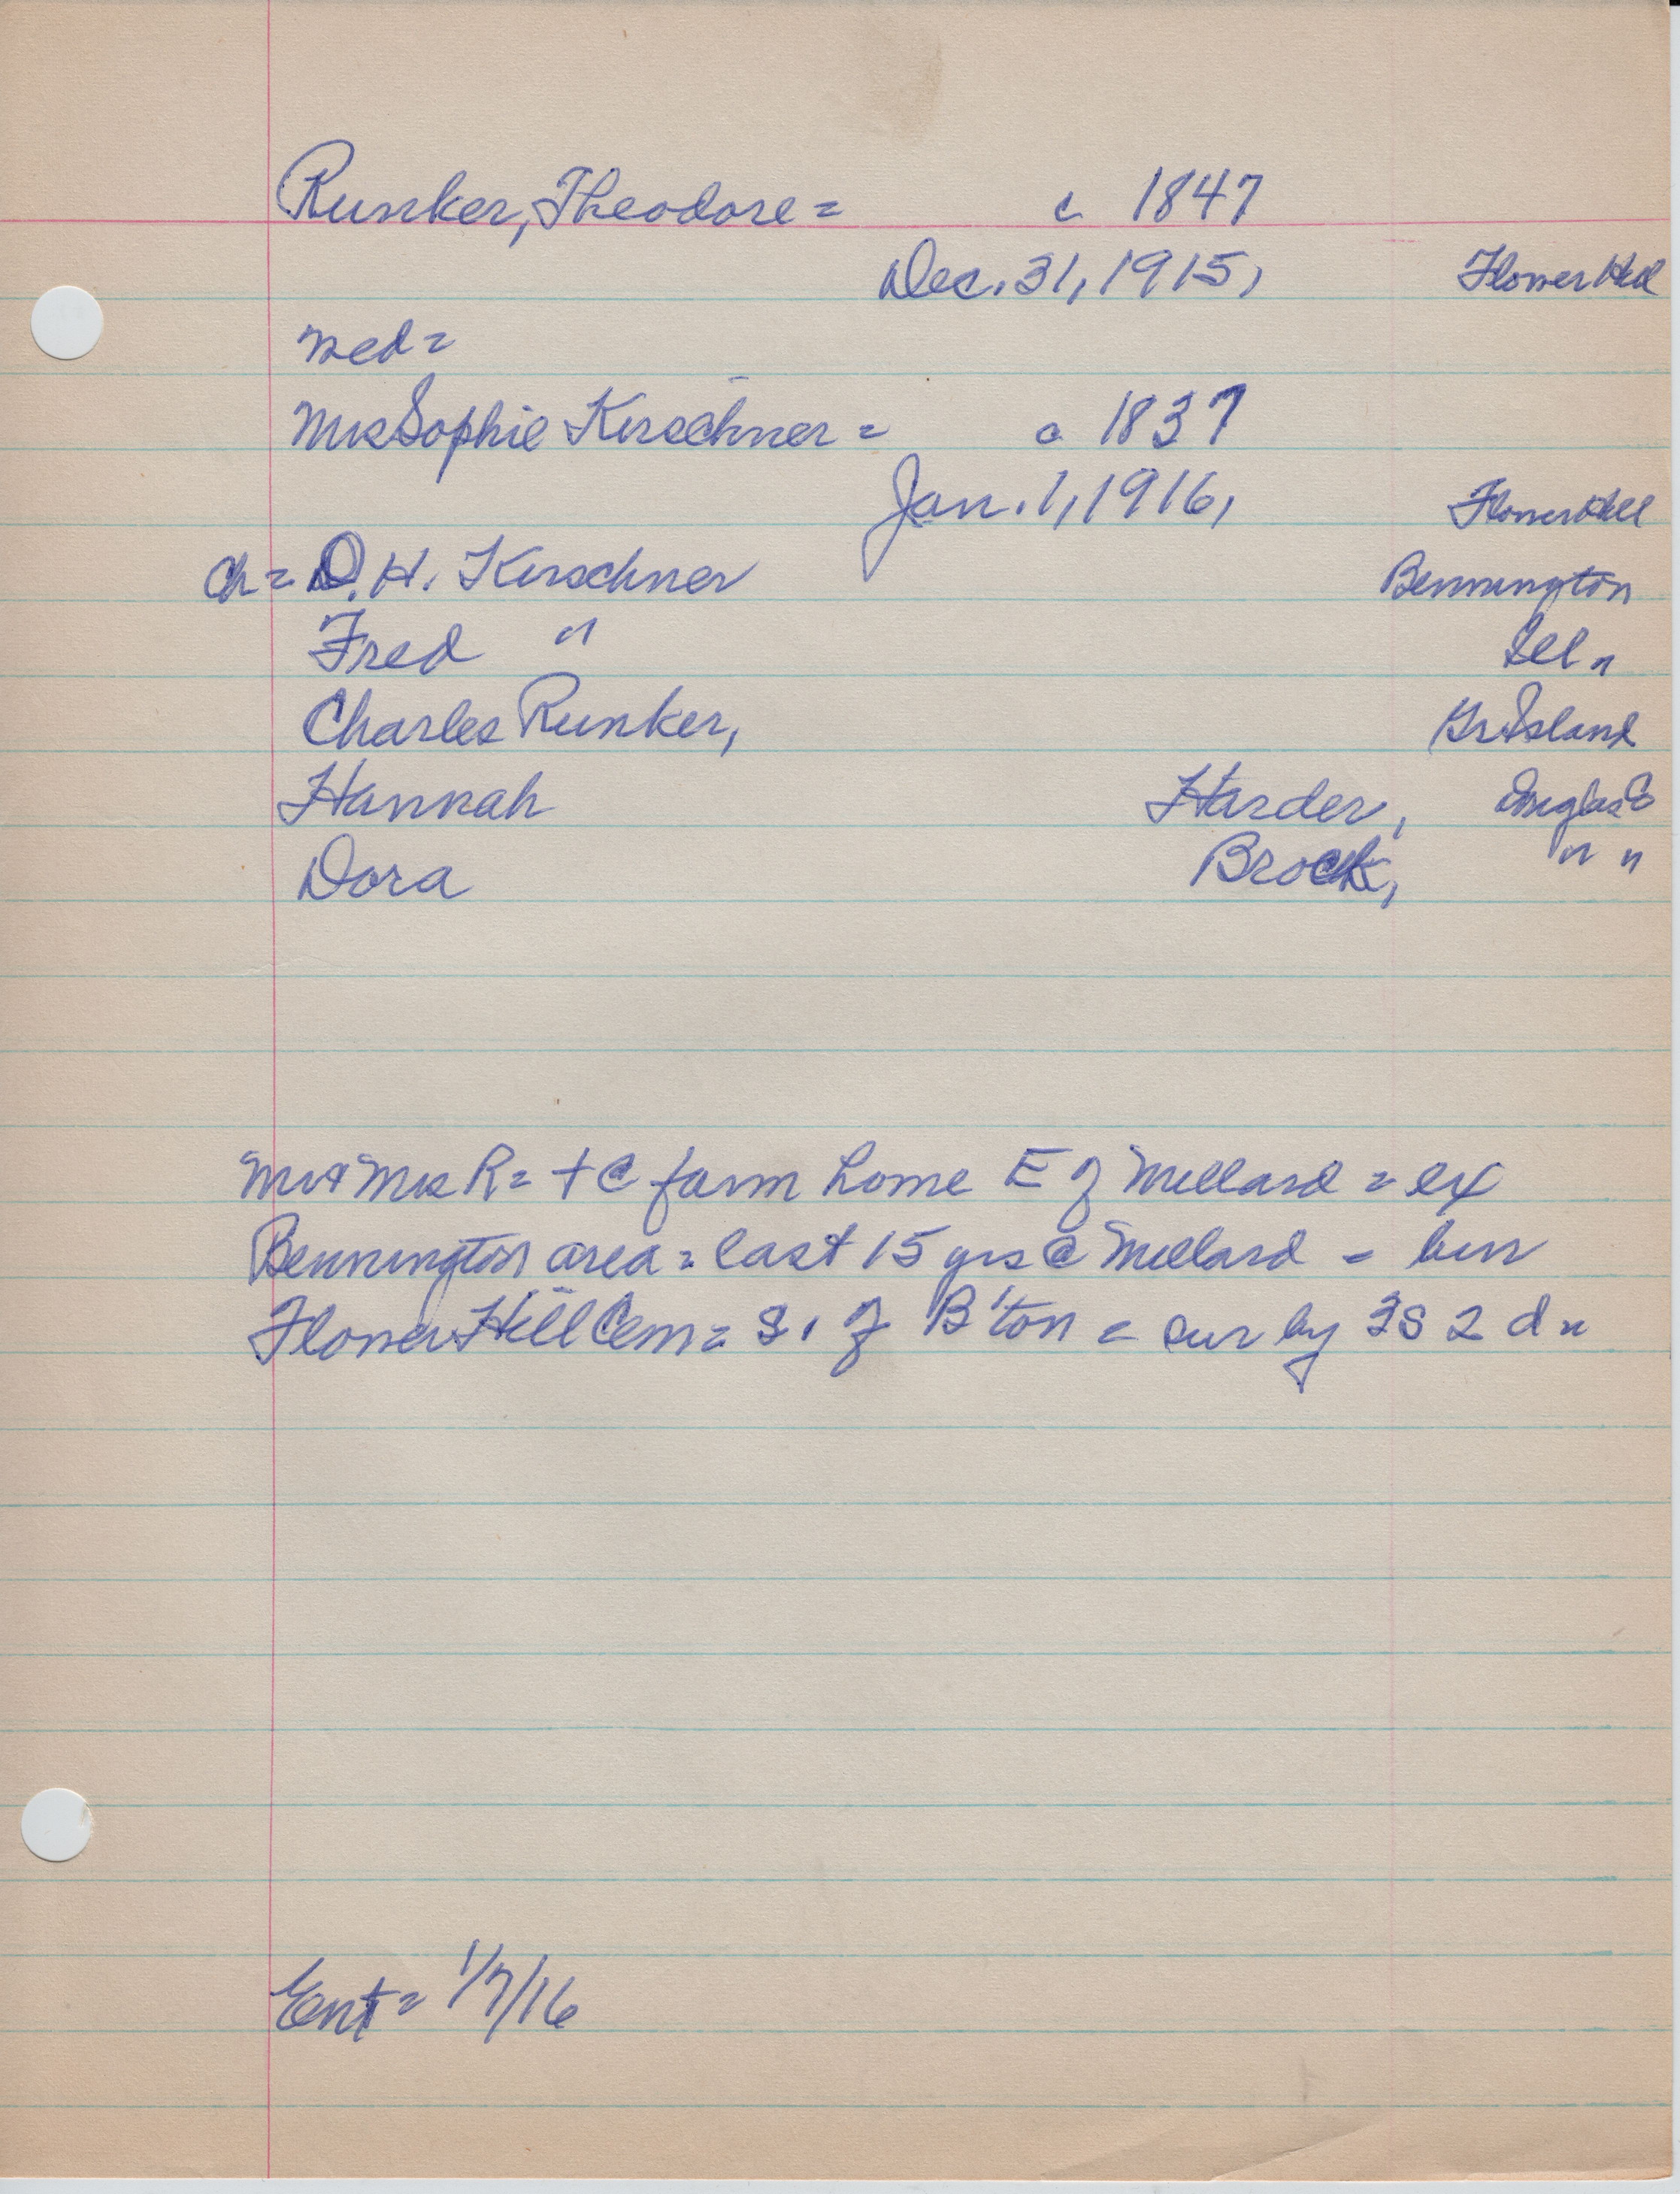 Runker, Theodore = c 1847
Dec. 31, 1915, Flower Hill
med =
Mrs Sophie Kerschner = c 1837
Jan. 1, 1916, Flower Hill
Ch = D. H. Kerschner Bennington
Fred " "
Charles Runker, Gr Island
Hannah Harder, Douglas Co
Dora Brock, " "
Mr + Mrs R = + @ farm home E of Millard = ex
Bennington area = last 15 yrs @ Millard = bur
Flower Hill Cem = S. of B'ton = sur by 3 S 2 d "
Ent = 1/7/16